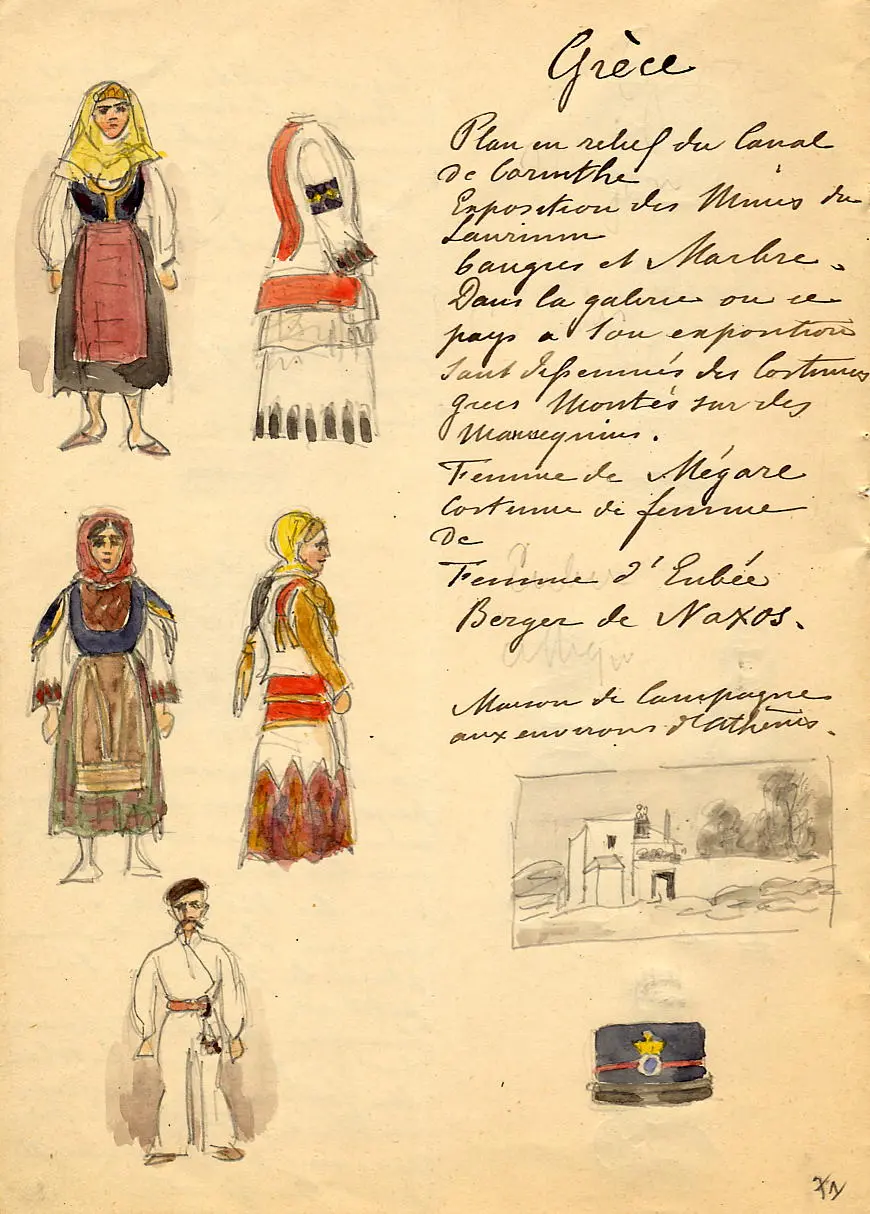 Grèce
Plan en relief du Canal
de Corinthe
Exposition des Mines du
Laurium
et Marbre.
Dans la galerie ou ce
pays a son exposition
sont des Costumes
grecs Montés sur des
Mannequins.
Femme de Mégare
Costume de femme
de
Femme d'Eubée
Berger de Naxos.
Maison de Campagne
aux environs d'Athènes.